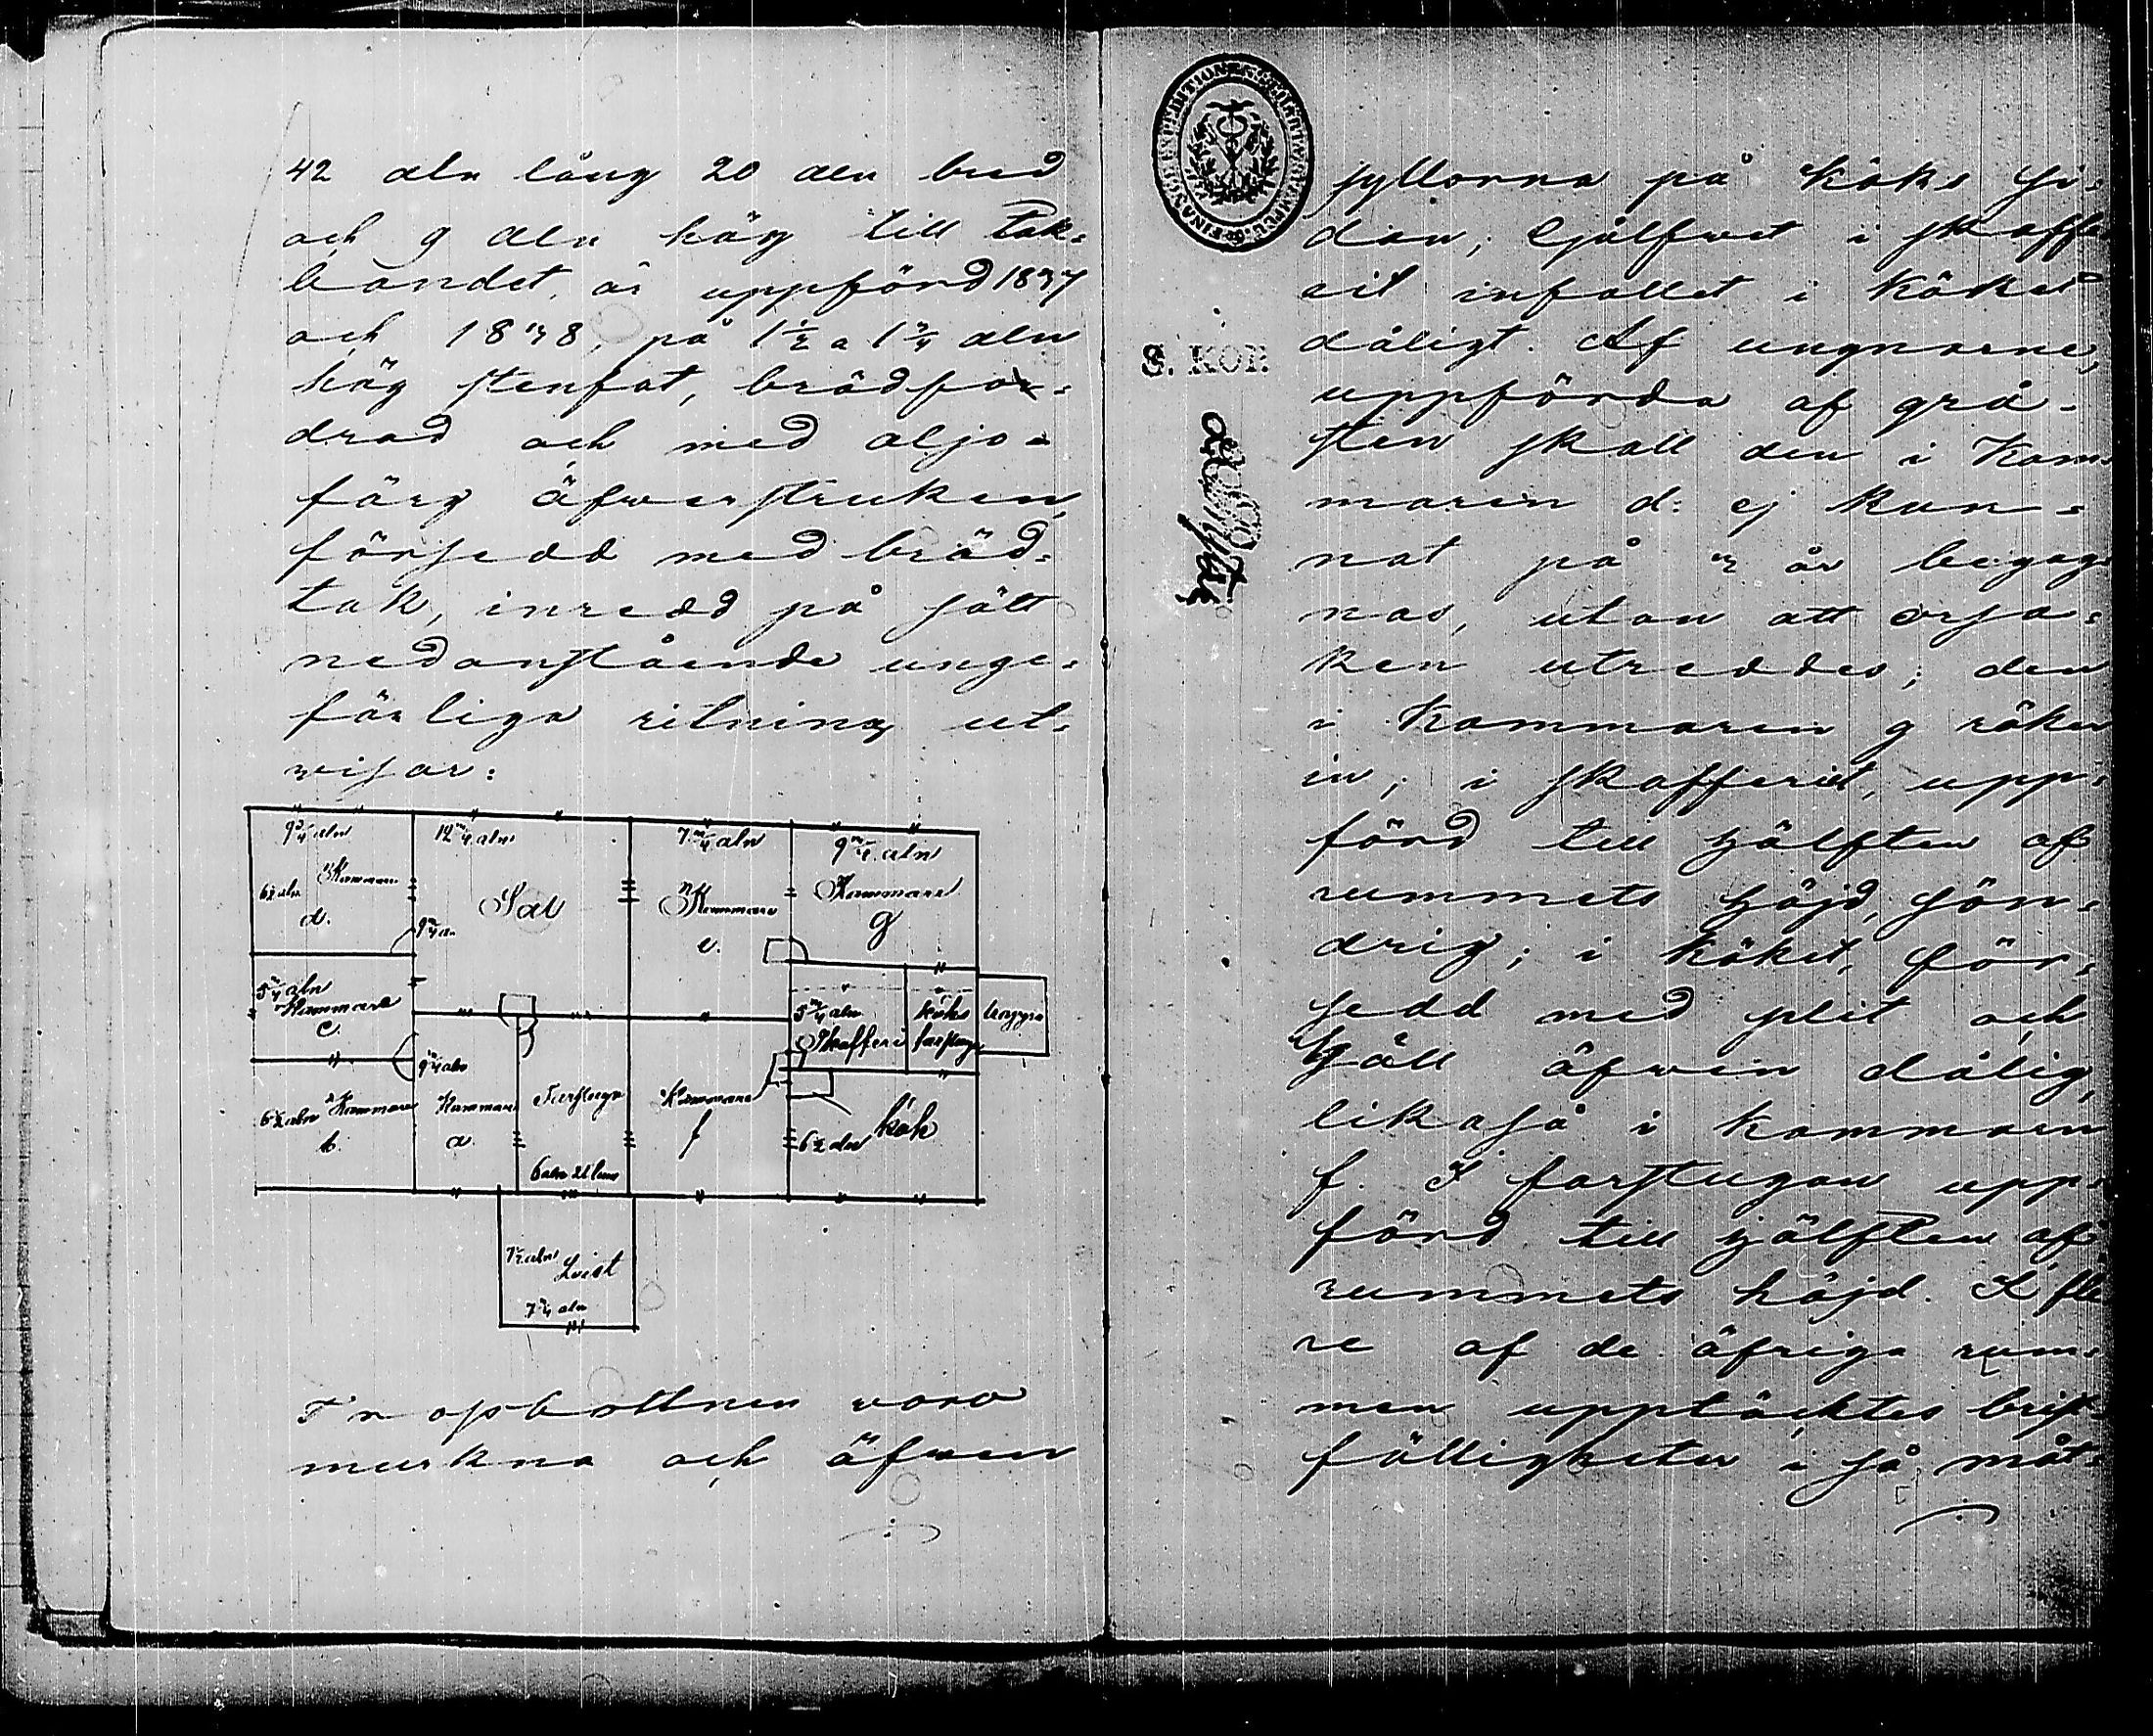 42 aln lång 20 aln bred
och 9 aln hög till tak=
bandet, är uppförd 1837
och 1838, på 1½ a 1¾ aln
hög stenfot, brädfor=
drad och med oljo=
färg öfverstruken,
försedd med bräd=
tak, inredd på sätt
nedanstående unge=
färliga ritning ut=
visar:
9¾ aln
12¾ aln
7¾ aln
9¾ aln
6½ aln
Kammare
d.
Sal
Kammare
e.
Kammare
g
9¾ a.
5¾ aln
Kammare
c.
5¾ aln
Skafferi
köks
farstuga
9¾ aln
6½ aln Kammare
b.
Kammare
a.
Farstuga
6 aln 21 tum
Kammare
f
6½ aln
kök
7½ aln
Qvist
7¾ aln
Trossbottnen voro
murkna och äfven
FINANCE EXPEDITIONEN
S. KOP.
syllorna på köks si=
dan; Golfvet i skaffe
riet infallet i köket
dåligt. Af ugnarne,
uppförda af grå=
sten skall den i Kam=
maren d: ej kun=
nat på 3 år begag
nas, utan att orsa=
ken utreddes; den
i Kammaren g röker
in; i skafferiet, upp=
förd till hjälften af
rummets höjd, sön=
drig; i köket, för=
sedd med spis och
häll äfven dålig,
likaså i kammaren
f. I farstugan upp=
förd till hjälften af
rummets höjd. I fle
re af de öfriga rum=
men upptäcktes brist=
fälligheter i så måt=